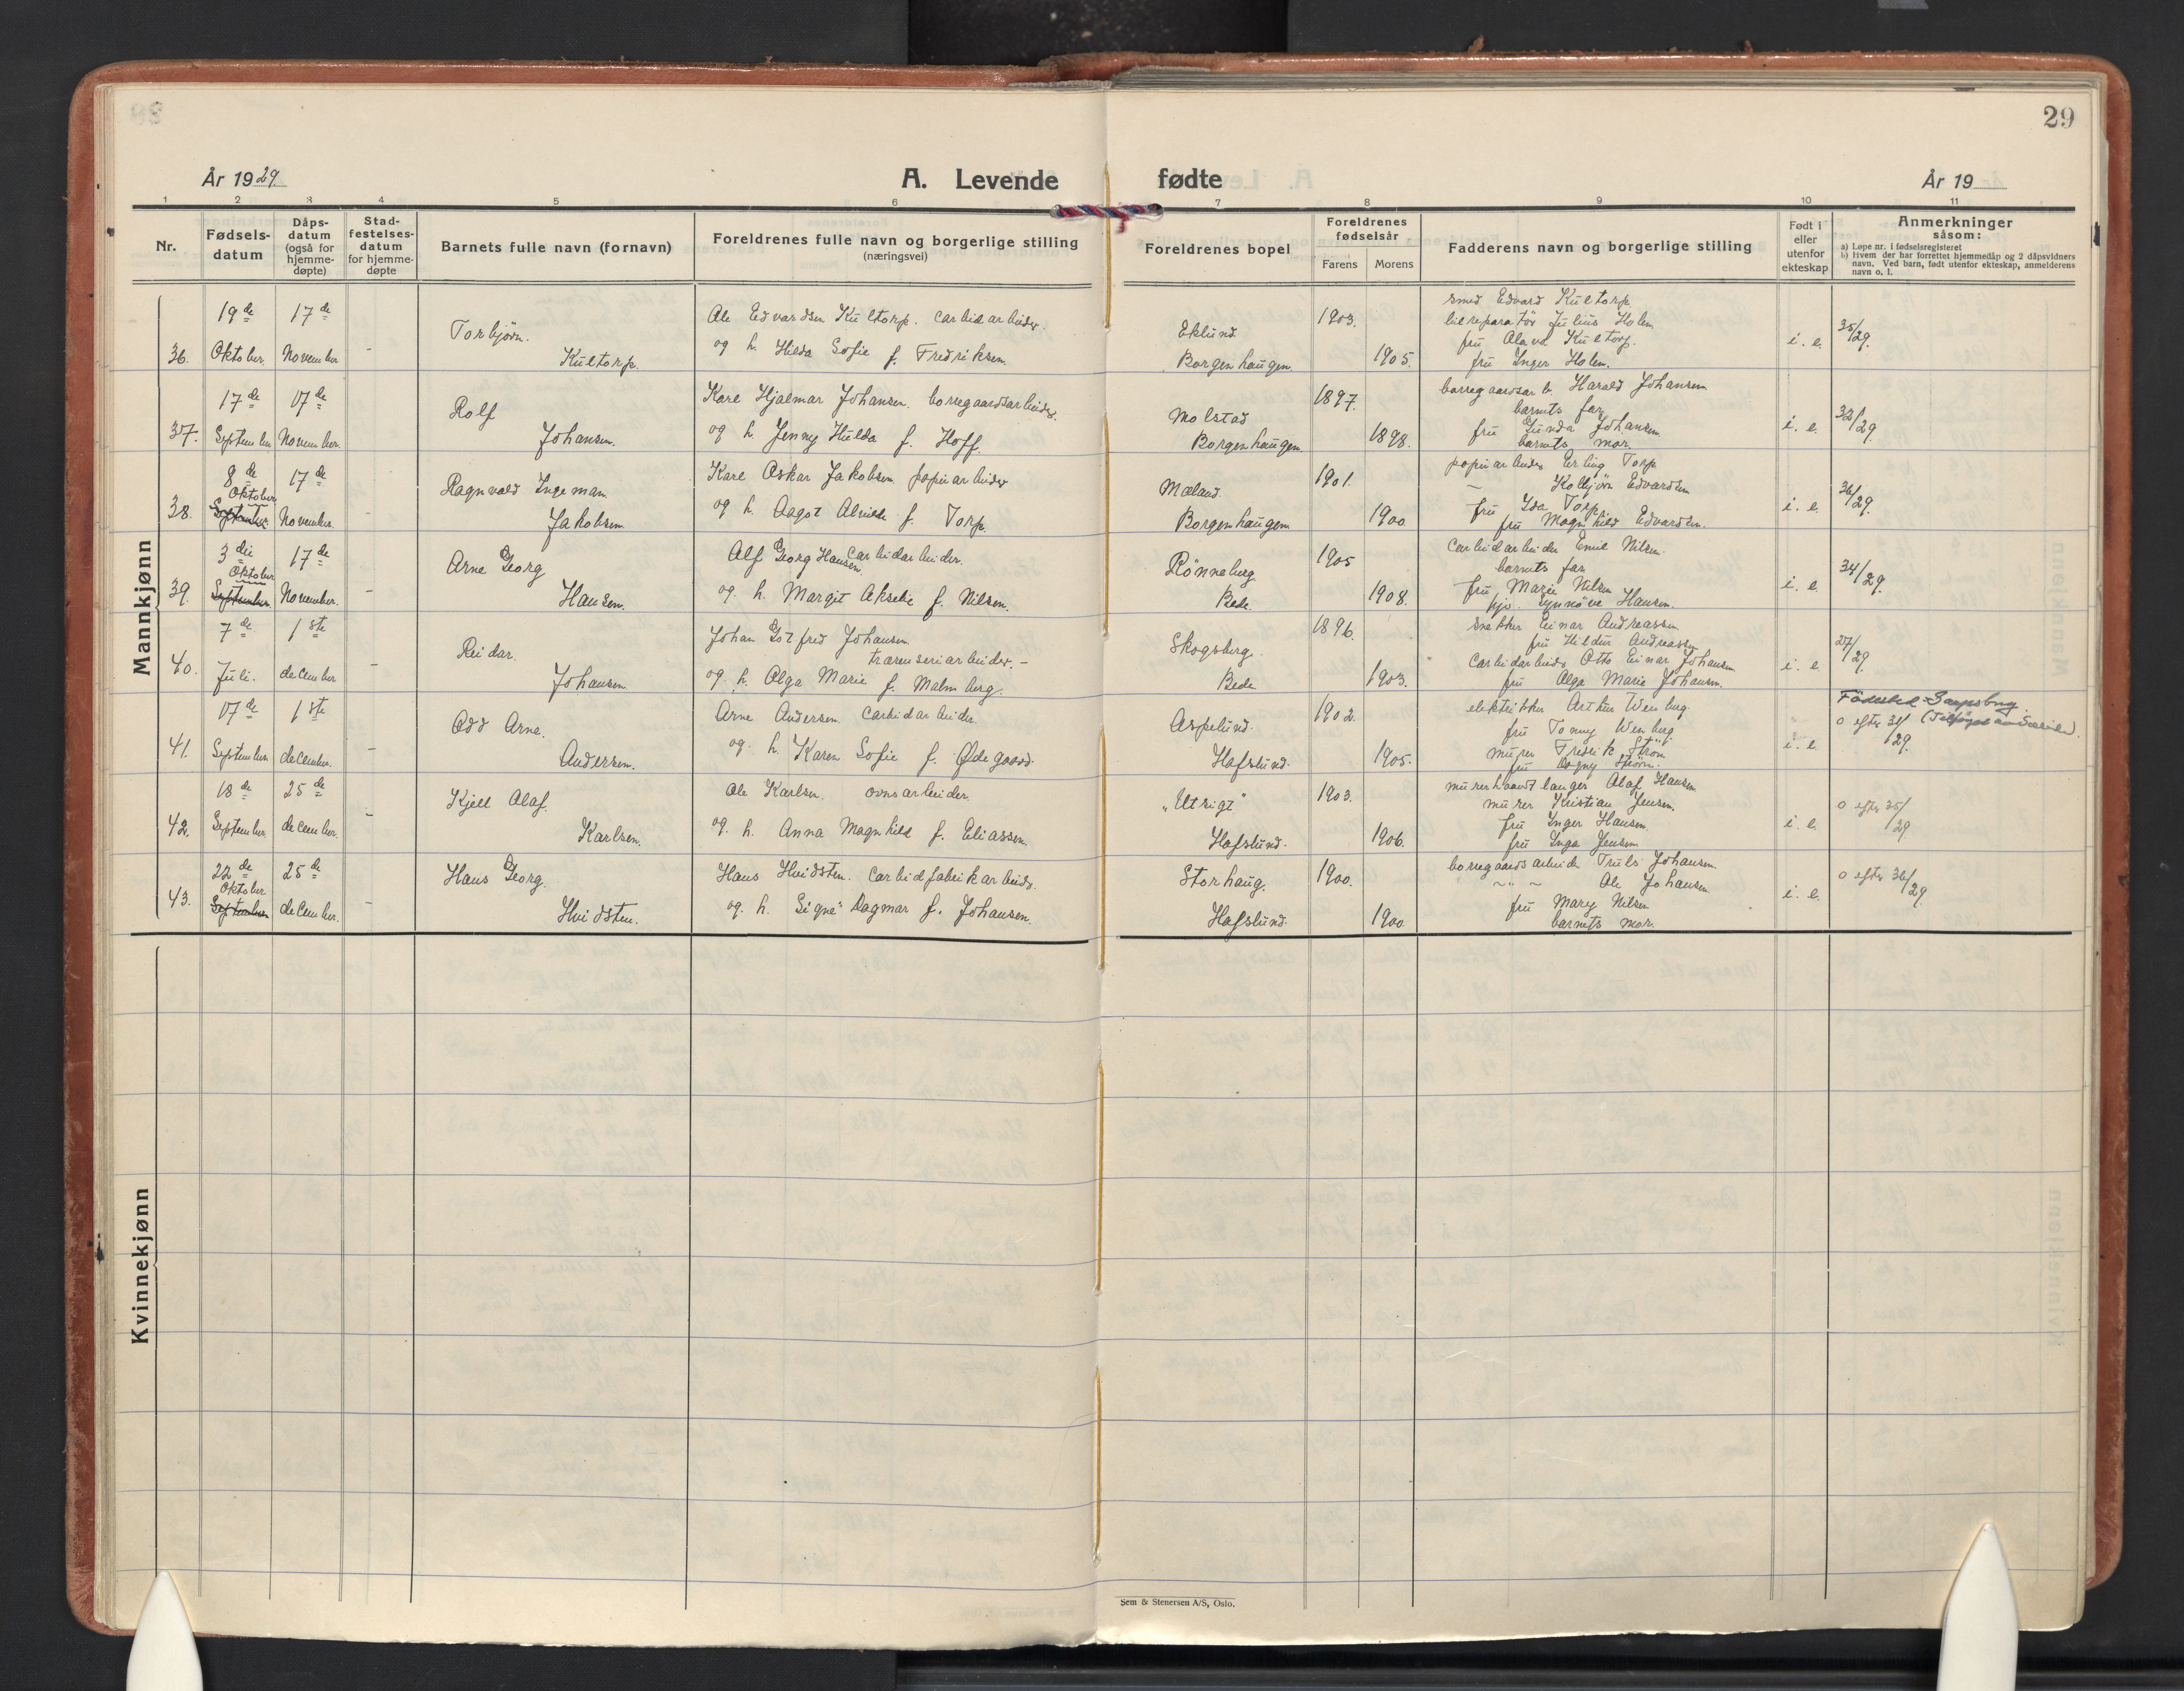 29
År 1929.
A. Levende fødte
År 19
1 2 3 4 5 6 7 8 9 10 11
Nr.
Fødsels-
datum
Dåps-
datum
(også for
hjemme-
døpte)
Stad-
festelses-
datum
for hjemme-
døpte
Barnets fulle navn (fornavn)
Foreldrenes fulle navn og borgerlige stilling
(næringsvei)
Foreldrenes bopel
Foreldrenes
fødselsår
Farens Morens
Fadderens navn og borgerlige stilling
Født i
eller
utenfor
ekteskap
Anmerkninger
såsom:
a) Løpe nr. i fødselsregisteret
b) Hvem der har forrettet hjemmedåp og 2 dåpsvidners
navn. Ved barn, født utenfor ekteskap, anmelderens
navn o. l.
Mannkjønn
36.
19de
Oktober
17de
November
-
Torbjörn.
Kultorp.
Ole Edvardsen Kultorp. Carbidarbeider.
og h. Hilda Sofie f. Fredriksen.
Eklund.
Borgenhaugen.
1903.
1905.
smed Edvard Kultorp
bilreparatör Julius Holen
fru Olava Kultorp.
fru Inger Holen.
i. e.
35/29.
37.
17de
September
17de
November.
Rolf
Johansen.
Karl Hjalmar Johansen. borregaardsarbeider.
og h. Jenny Hulda f. Hoff.
Molstad
Borgenhaugen
1897.
1898.
borregaardsarb. Harald Johansen
barnets far
fru Gunda Johansen.
barnets mor.
i. e.
32/29.
38.
8de
Oktober
September
17de
November.
-
Ragnvald Ingeman
Jakobsen
Karl Oskar Jakobsen papirarbeider
og h. Aagot Alvilde f. Torp.
Mæland.
Borgenhaugen
1901.
1900
papirarbeider Erling Torp
~ Kolbjörn Edvardsen
fru Ida Torp.
fru Magnhild Edvardsen.
i. e.
36/29.
39.
3die
Oktober
September
17de
November.
-
Arne Georg
Hansen.
Alf Georg Hansen Carbidarbeider.
og. h. Margit Akselie f. Nilsen.
Rönneberg.
Bede.
1905
1908.
Carbidarbeider Emil Nilsen.
barnets far
fru Marie Nilsen
frö. Synnöve Hansen.
i. e.
34/29.
40.
7de
Juli.
1ste
december
-
Reidar.
Johansen
Johan Gotfred Johansen
træsenseriarbeider. -
og. h. Olga Marie f. Malmberg.
Skogsberg.
Bede
1896.
1903.
snekker Einar Andreassen
fru Hildur Andreassen
Carbidarbeider Otto Einar Johansen
fru Olga Marie Johansen.
i. e
27/29.
41.
17de
September
1ste
december.
-
Odd Arne.
Andersen.
Arne Andersen. Carbidarbeider.
og. h. Karen Sofie f. Ødegaard.
Aspelund.
Hafslund.
1902.
1905.
elektriker Arthur Wenberg.
fru Tonny Wenberg.
murer Fredrik Ström
fru Dagny Ström.
i. e.
Födested-Sarpsborg.
o efter 31/29. (Tilføyd
42.
18de
September
25de
december.
-
Kjell Olaf.
Karlsen.
Ole Karlsen. ovnsarbeider.
og. h. Anna Magnhild f. Eliassen
„Utsigt"
Hafslund.
1903.
1906.
murerhaandtlanger Olaf Hansen
murer Kristian Jensen.
fru Inger Hansen.
fru Inga Jensen
i. e.
o efter 35/29
43.
22de
Oktober
September
25de
december.
-
Hans Georg.
Hvidsten.
Hans Hvidsten. Carbidfabrikarbeider.
og. h. Signe Dagmar f. Johansen.
Storhaug.
Hafslund.
1900.
1900.
borregaardsarbeider Truls Johansen.
~"~ Ole Johansen
fru Mary Nilsen
barnets mor.
i. e.
o efter 36/29.
Kvinnekjønn
Sem & Stenersen A/S, Oslo.